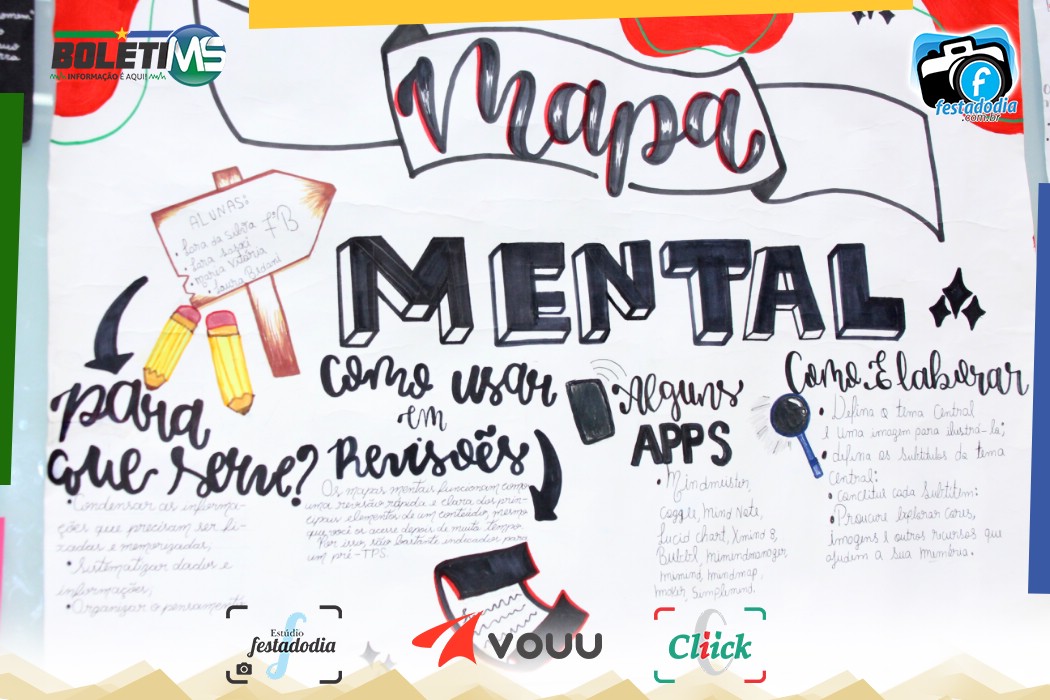 BOLETIMS
INFORMAÇÃO É AQUI
festadodia
.com.br
Mapa
MENTAL
ALUNAS: 1ºB
• Lara da Silva
• Lara
• Maria Vitória
• Laura
Para
que serve?
• Condensar as informa-
ções que precisam ser fi-
xadas e memorizadas;
• Sistematizar dados e
informações;
• Organizar o pensamento
Como usar
em
Revisões
Os mapas mentais funcionam como
uma revisão rápida e clara dos prin-
cipais elementos de um conteúdo, mesmo
que você os acesse depois de muito tempo.
Por isso, são bastante indicados para
um pré-TPS.
Alguns
APPS
• Mindmeister,
Coggle, Ming Note,
Lucid chart, Xmind 8,
mimind, mindmap,
Simplemind.
Como Elaborar
• Defina o tema Central
E uma imagem para ilustrá-lo;
• defina os Subtítulos do tema
Central;
• conceitue cada Subtitem;
• Proucure Explorar cores,
imagens e outros recursos que
ajudem a sua memória.
Estúdio
festadodia
VOUU
Cliick